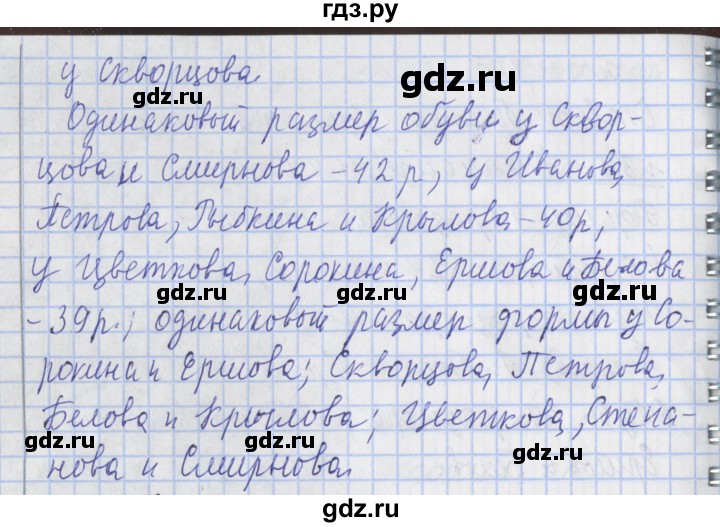 гдз.ру
у Скворцова.
Одинаковый размер обуви у Сквор-
цова и Смирнова - 42 р, у Иванова,
Петрова, Рыбкина и Крылова - 40р,
у Цветкова, Сорокина, Ершова и Белова
- 39 р.; одинаковый размер формы у Со-
рокина и Ершова; Скворцова, Петрова,
Белова и Крылова; Цветкова, Степа-
нова и Смирнова.
gdz.ru
gdz.ru
gdz.ru
gdz.ru
gdz.ru
gdz.ru
gdz.ru
gdz.ru
gdz.ru
gdz.ru
gdz.ru